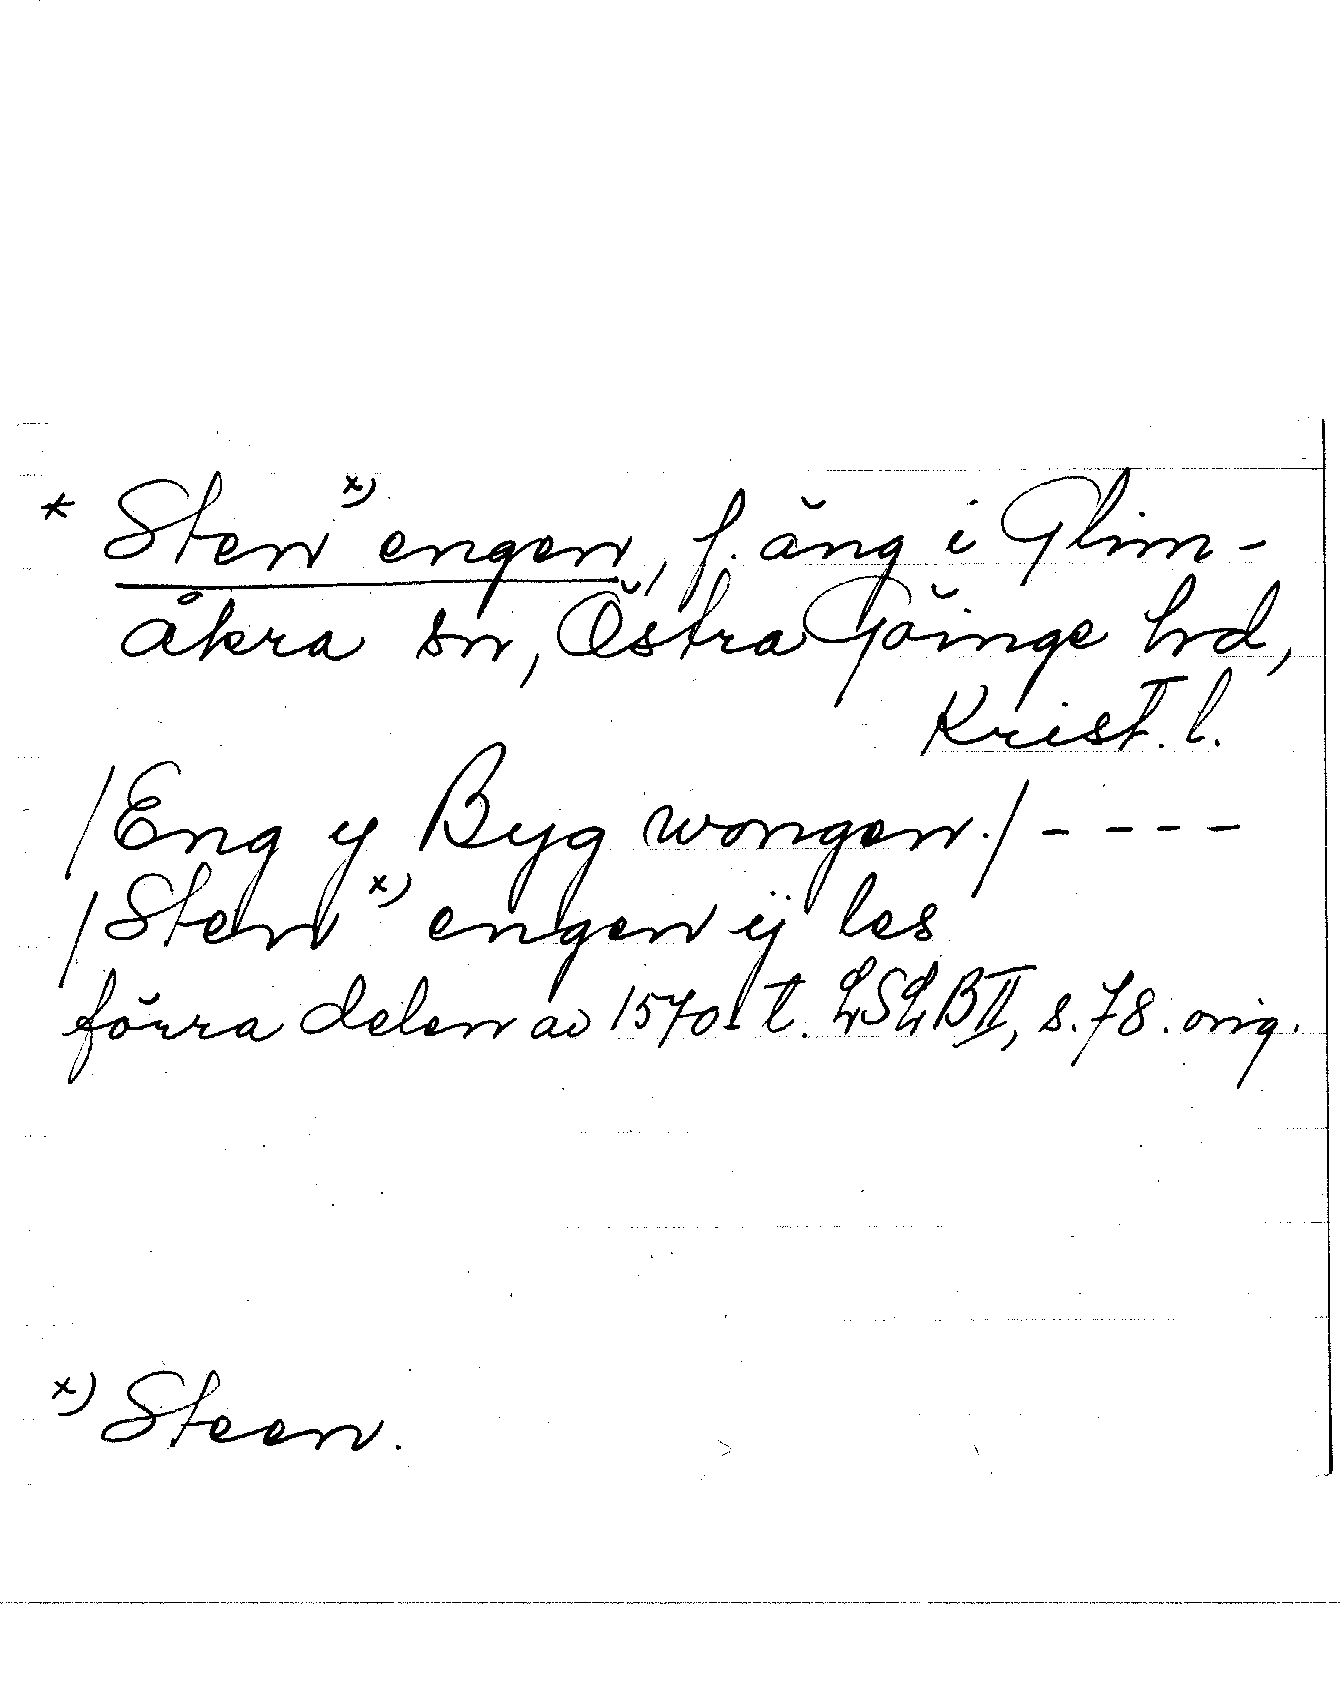 * Sten x) engen, f. äng i Glim-
åkra sn, Östra Göinge hd,
Krist. l.
/Eng y Byg wongen./ - - - -
/Sten x) engen ij les
förra delen av 1570-t. LSLB II, s. 78. orig.
x) Steen.